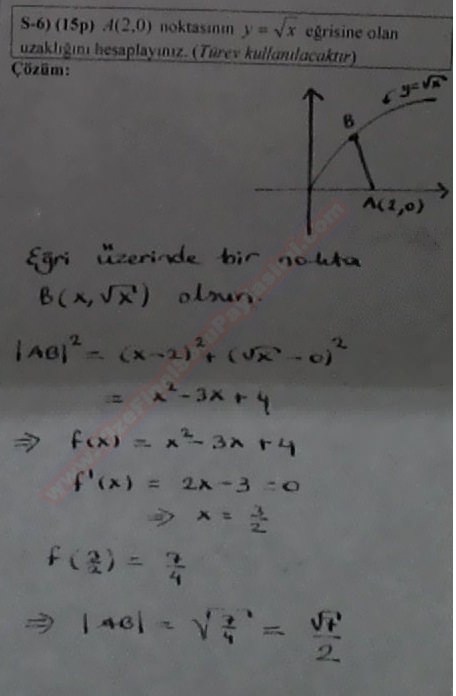 S-6) (15p) A(2,0) noktasının y = √x eğrisine olan
uzaklığını hesaplayınız. (Türev kullanılacaktır)
Çözüm:
y=√x
B
A(2,0)
Eğri üzerinde bir nokta
B(x, √x) olsun.
|AB|² = (x-2)² + (√x - 0)²
= x² - 3x + 4
⇒ f(x) = x² - 3x + 4
f'(x) = 2x - 3 = 0
⇒ x = 3/2
f(3/2) = 7/4
⇒ |AB| = √(7/4) = √7/2